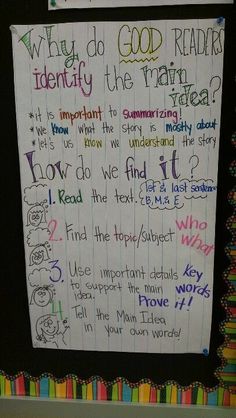 Why do GOOD READERS
identify the main
idea?
*it is important to summarizing!
*we know what the story is mostly about
*let's us know we understand the story
how do we find it?
1. Read the text. (1st & last sentence
B, M, & E)
2. Find the topic/subject who
what
3. Use important details key
to support the main words
idea. Prove it!
4. Tell the Main Idea
in your own words!